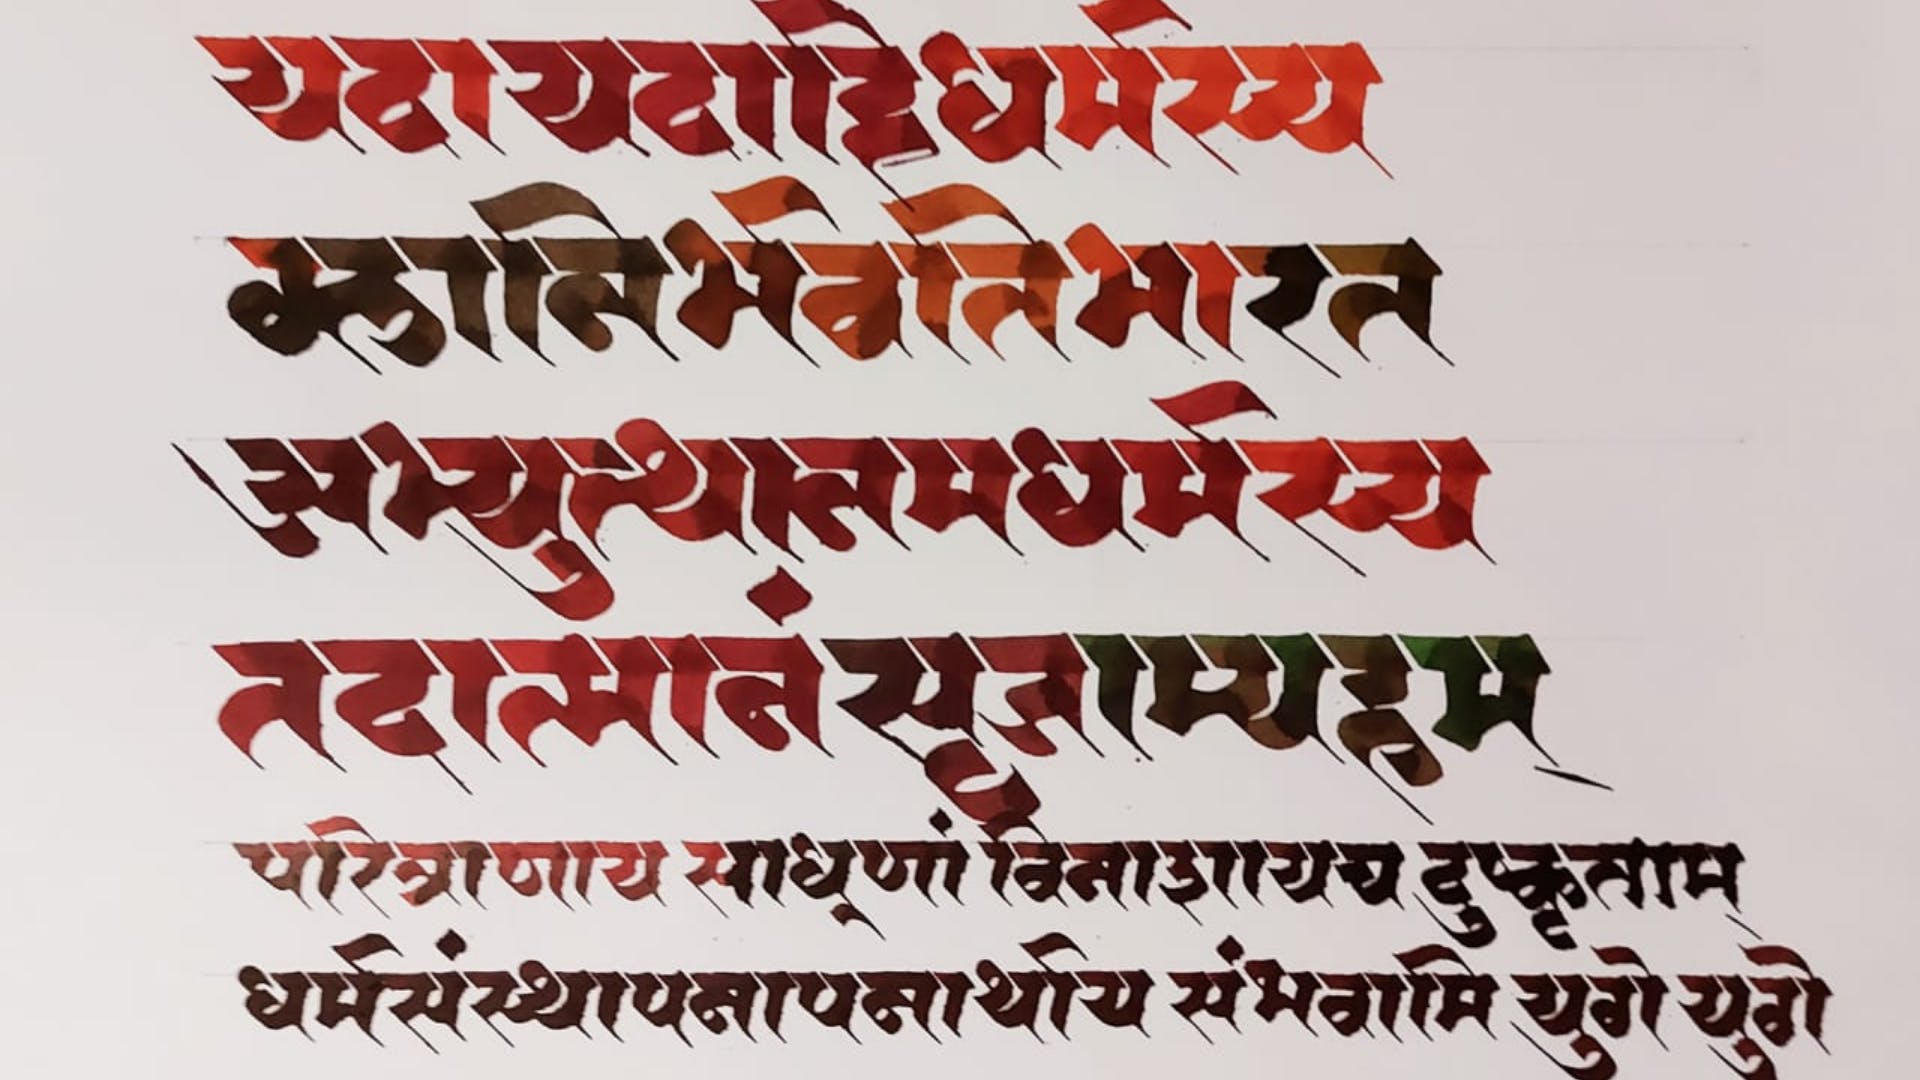 यदा यदा हि धर्मस्य
ग्लानिर्भवति भारत
अभ्युत्थानमधर्मस्य
तदात्मानं सृजाम्यहम्
परित्राणाय साधूणां विनाशायच दुष्कृताम्
धर्मसंस्थापनापनार्थाय संभवामि युगे युगे